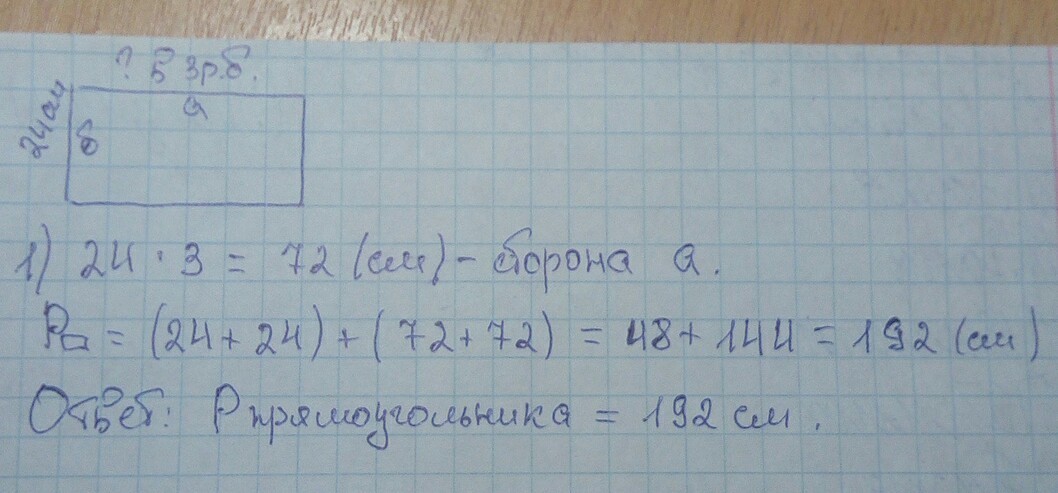 ? в 3 р. б.
a
24 см
б
1) 24 · 3 = 72 (см) - сторона a.
P▭ = (24 + 24) + (72 + 72) = 48 + 144 = 192 (см)
Ответ: P прямоугольника = 192 см.